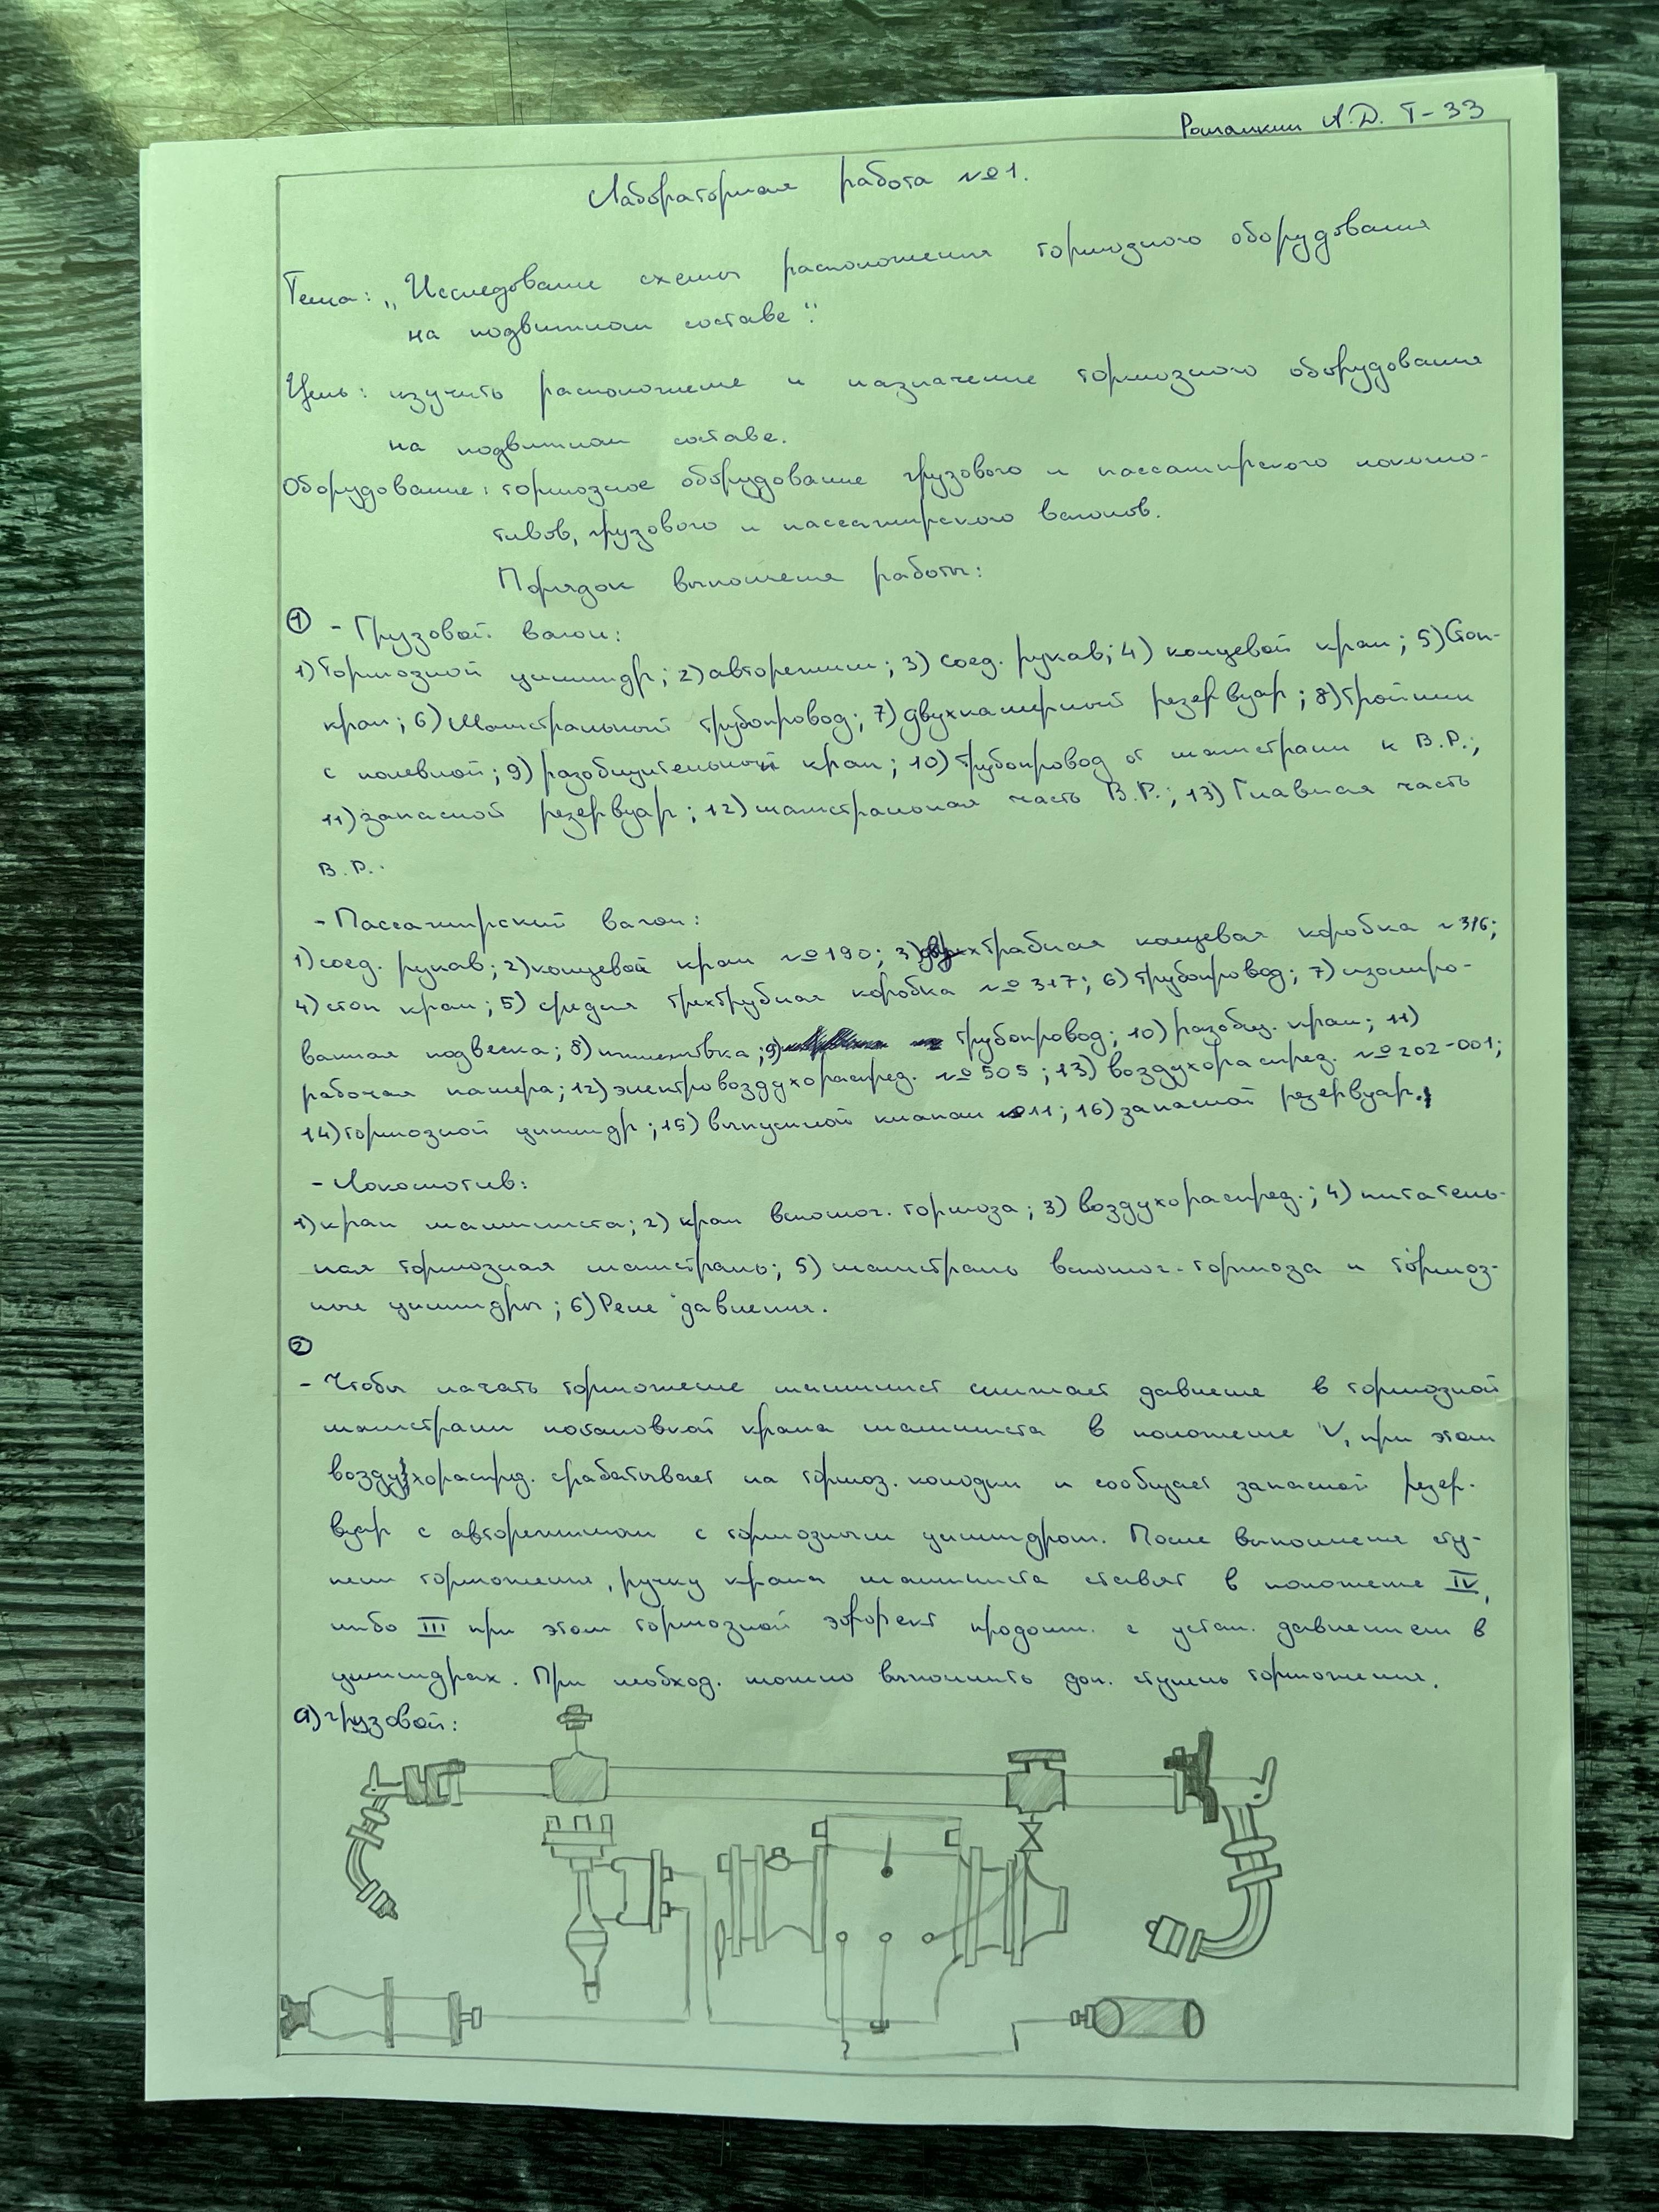 А.Д. Т-33
Лабораторная работа №1.
Тема: „Исследование схемы расположения тормозного оборудования
на подвижном составе“.
Цель: изучить расположение и назначение тормозного оборудования
на подвижном составе.
Оборудование: тормозное оборудование грузового и пассажирского локомо-
тивов, грузового и пассажирского вагонов.
Порядок выполнения работы:
① - Грузовой вагон:
1) Тормозной цилиндр; 2) авторежим; 3) соед. рукав; 4) концевой кран; 5) Стоп-
кран; 6) Магистральный трубопровод; 7) двухкамерный резервуар; 8) тройник
с полевной; 9) разобщительный кран; 10) трубопровод от магистрали к В.Р.;
11) запасной резервуар; 12) магистральная часть В.Р.; 13) Главная часть
В.Р.
- Пассажирский вагон:
1) соед. рукав; 2) концевой кран №190; 3) концевая коробка №316;
4) стоп кран; 5) средняя трехтрубная коробка №317; 6) трубопровод; 7) изолиро-
ванная подвеска; 8) 9) трубопровод; 10) разобщ. кран; 11)
рабочая камера; 12) электровоздухораспред. №505; 13) воздухораспред. №202-001;
14) тормозной цилиндр; 15) выпускной клапан №11; 16) запасной резервуар.
- Локомотив:
1) кран машиниста; 2) кран вспомог. тормоза; 3) воздухораспред.; 4) питатель-
ная тормозная магистраль; 5) магистраль вспомог. тормоза и тормоз-
ные цилиндры; 6) Реле давления.
②
- Чтобы начать торможение машинист снижает давление в тормозной
магистрали постановкой крана машиниста в положение V, при этом
воздухораспред. срабатывает на тормоз. колодки и сообщает запасной резер-
вуар с авторежимом с тормозным цилиндром. После выполнения сту-
пени торможения, ручку крана машиниста ставят в положение IV,
либо III при этом тормозной эффект продолж. с устан. давлением в
цилиндрах. При необход. можно выполнить доп. ступень торможения.
а) грузовой: